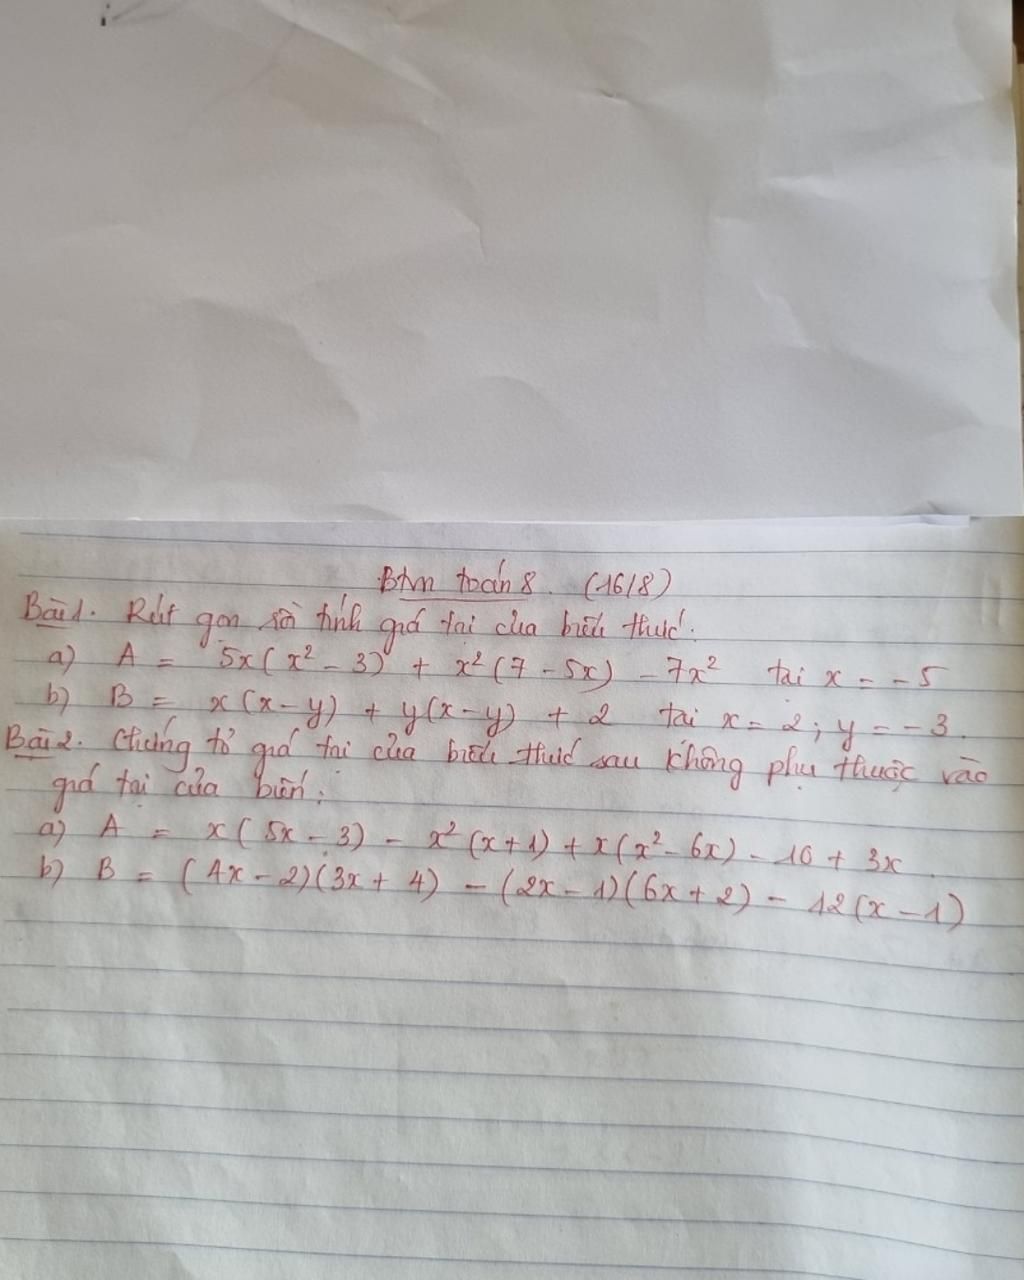 Btm toán 8. (16/8)
Bài 1. Rút gọn rồi tính giá trị của biểu thức.
a) A = 5x(x² - 3) + x²(7 - 5x) - 7x² tại x = -5
b) B = x(x-y) + y(x-y) + 2 tại x = 2; y = -3.
Bài 2. Chứng tỏ giá trị của biểu thức sau không phụ thuộc vào
giá trị của biến:
a) A = x(5x - 3) - x²(x+1) + x(x² - 6x) - 10 + 3x.
b) B = (4x - 2)(3x + 4) - (2x - 1)(6x + 2) - 12(x - 1)